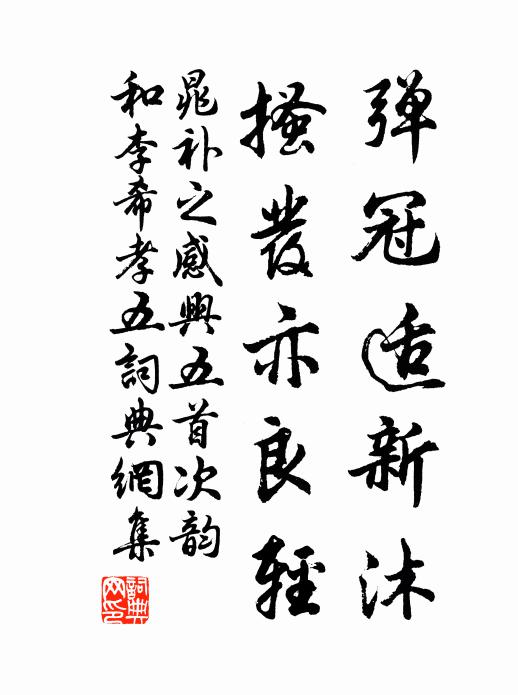 弹冠适新沐
搔发亦良轻
晁补之感興五首次韵
和李希孝五詞典網集
詞典网印